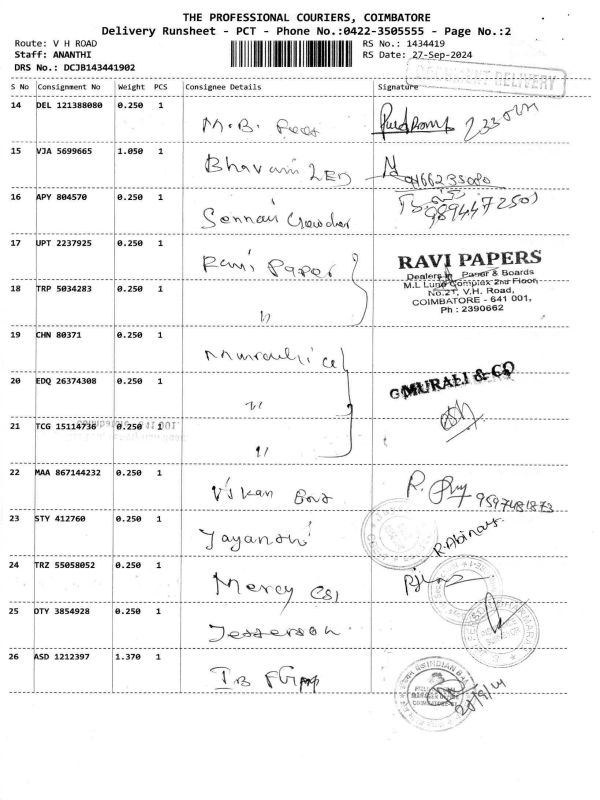 THE PROFESSIONAL COURIERS, COIMBATORE
Delivery Runsheet - PCT - Phone No.:0422-3505555 - Page No.:2
Route: V H ROAD
Staff: ANANTHI
DRS No.: DCJB143441902
RS No.: 1434419
RS Date: 27-Sep-2024
DOCUMENT DELIVERY
S No Consignment No Weight PCS Consignee Details Signature
14 DEL 121388080 0.250 1 M.B.
15 VJA 5699665 1.050 1 Bhavani LED
16 APY 804570 0.250 1 9894472501
17 UPT 2237925 0.250 1 Ravi Paper
RAVI PAPERS
Dealers in Paper & Boards
M.L Luna Complex 2nd Floor,
No.21, V.H. Road,
COIMBATORE - 641 001,
Ph : 2390662
18 TRP 5034283 0.250 1 "
19 CHN 80371 0.250 1
20 EDQ 26374308 0.250 1 "
MURALI & CO
21 TCG 15114736 0.250 1 "
22 MAA 867144232 0.250 1 9597481873
23 STY 412760 0.250 1 Jayanthi R. Abinaya
24 TRZ 55058052 0.250 1 Mercy CSI
25 DTY 3854928 0.250 1 Jesserson
26 ASD 1212397 1.370 1
INDIAN
COIMBATORE